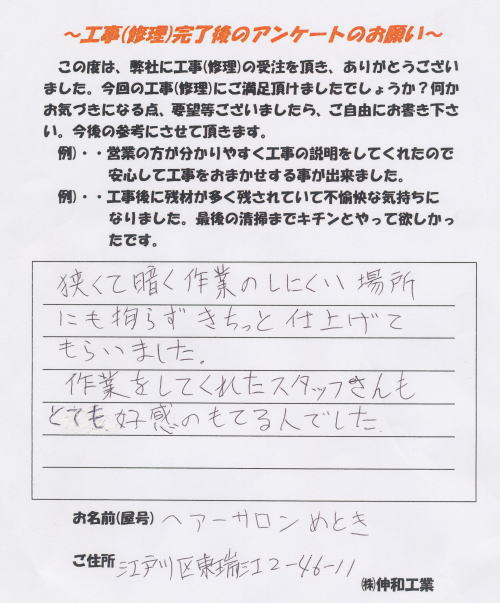 ～工事(修理)完了後のアンケートのお願い～
この度は、弊社に工事(修理)の受注を頂き、ありがとうござい
ました。今回の工事(修理)にご満足頂けましたでしょうか？何か
お気づきになる点、要望等ございましたら、ご自由にお書き下さ
い。今後の参考にさせて頂きます。
例)・・営業の方が分かりやすく工事の説明をしてくれたので
安心して工事をおまかせする事が出来ました。
例)・・工事後に残材が多く残されていて不愉快な気持ちに
なりました。最後の清掃までキチンとやって欲しかっ
たです。
狭くて暗く作業のしにくい場所
にも拘らずきちっと仕上げて
もらいました。
作業をしてくれたスタッフさんも
とても好感のもてる人でした。
お名前(屋号) ヘアーサロンめとき
ご住所 江戸川区東瑞江2-46-11
㈱伸和工業